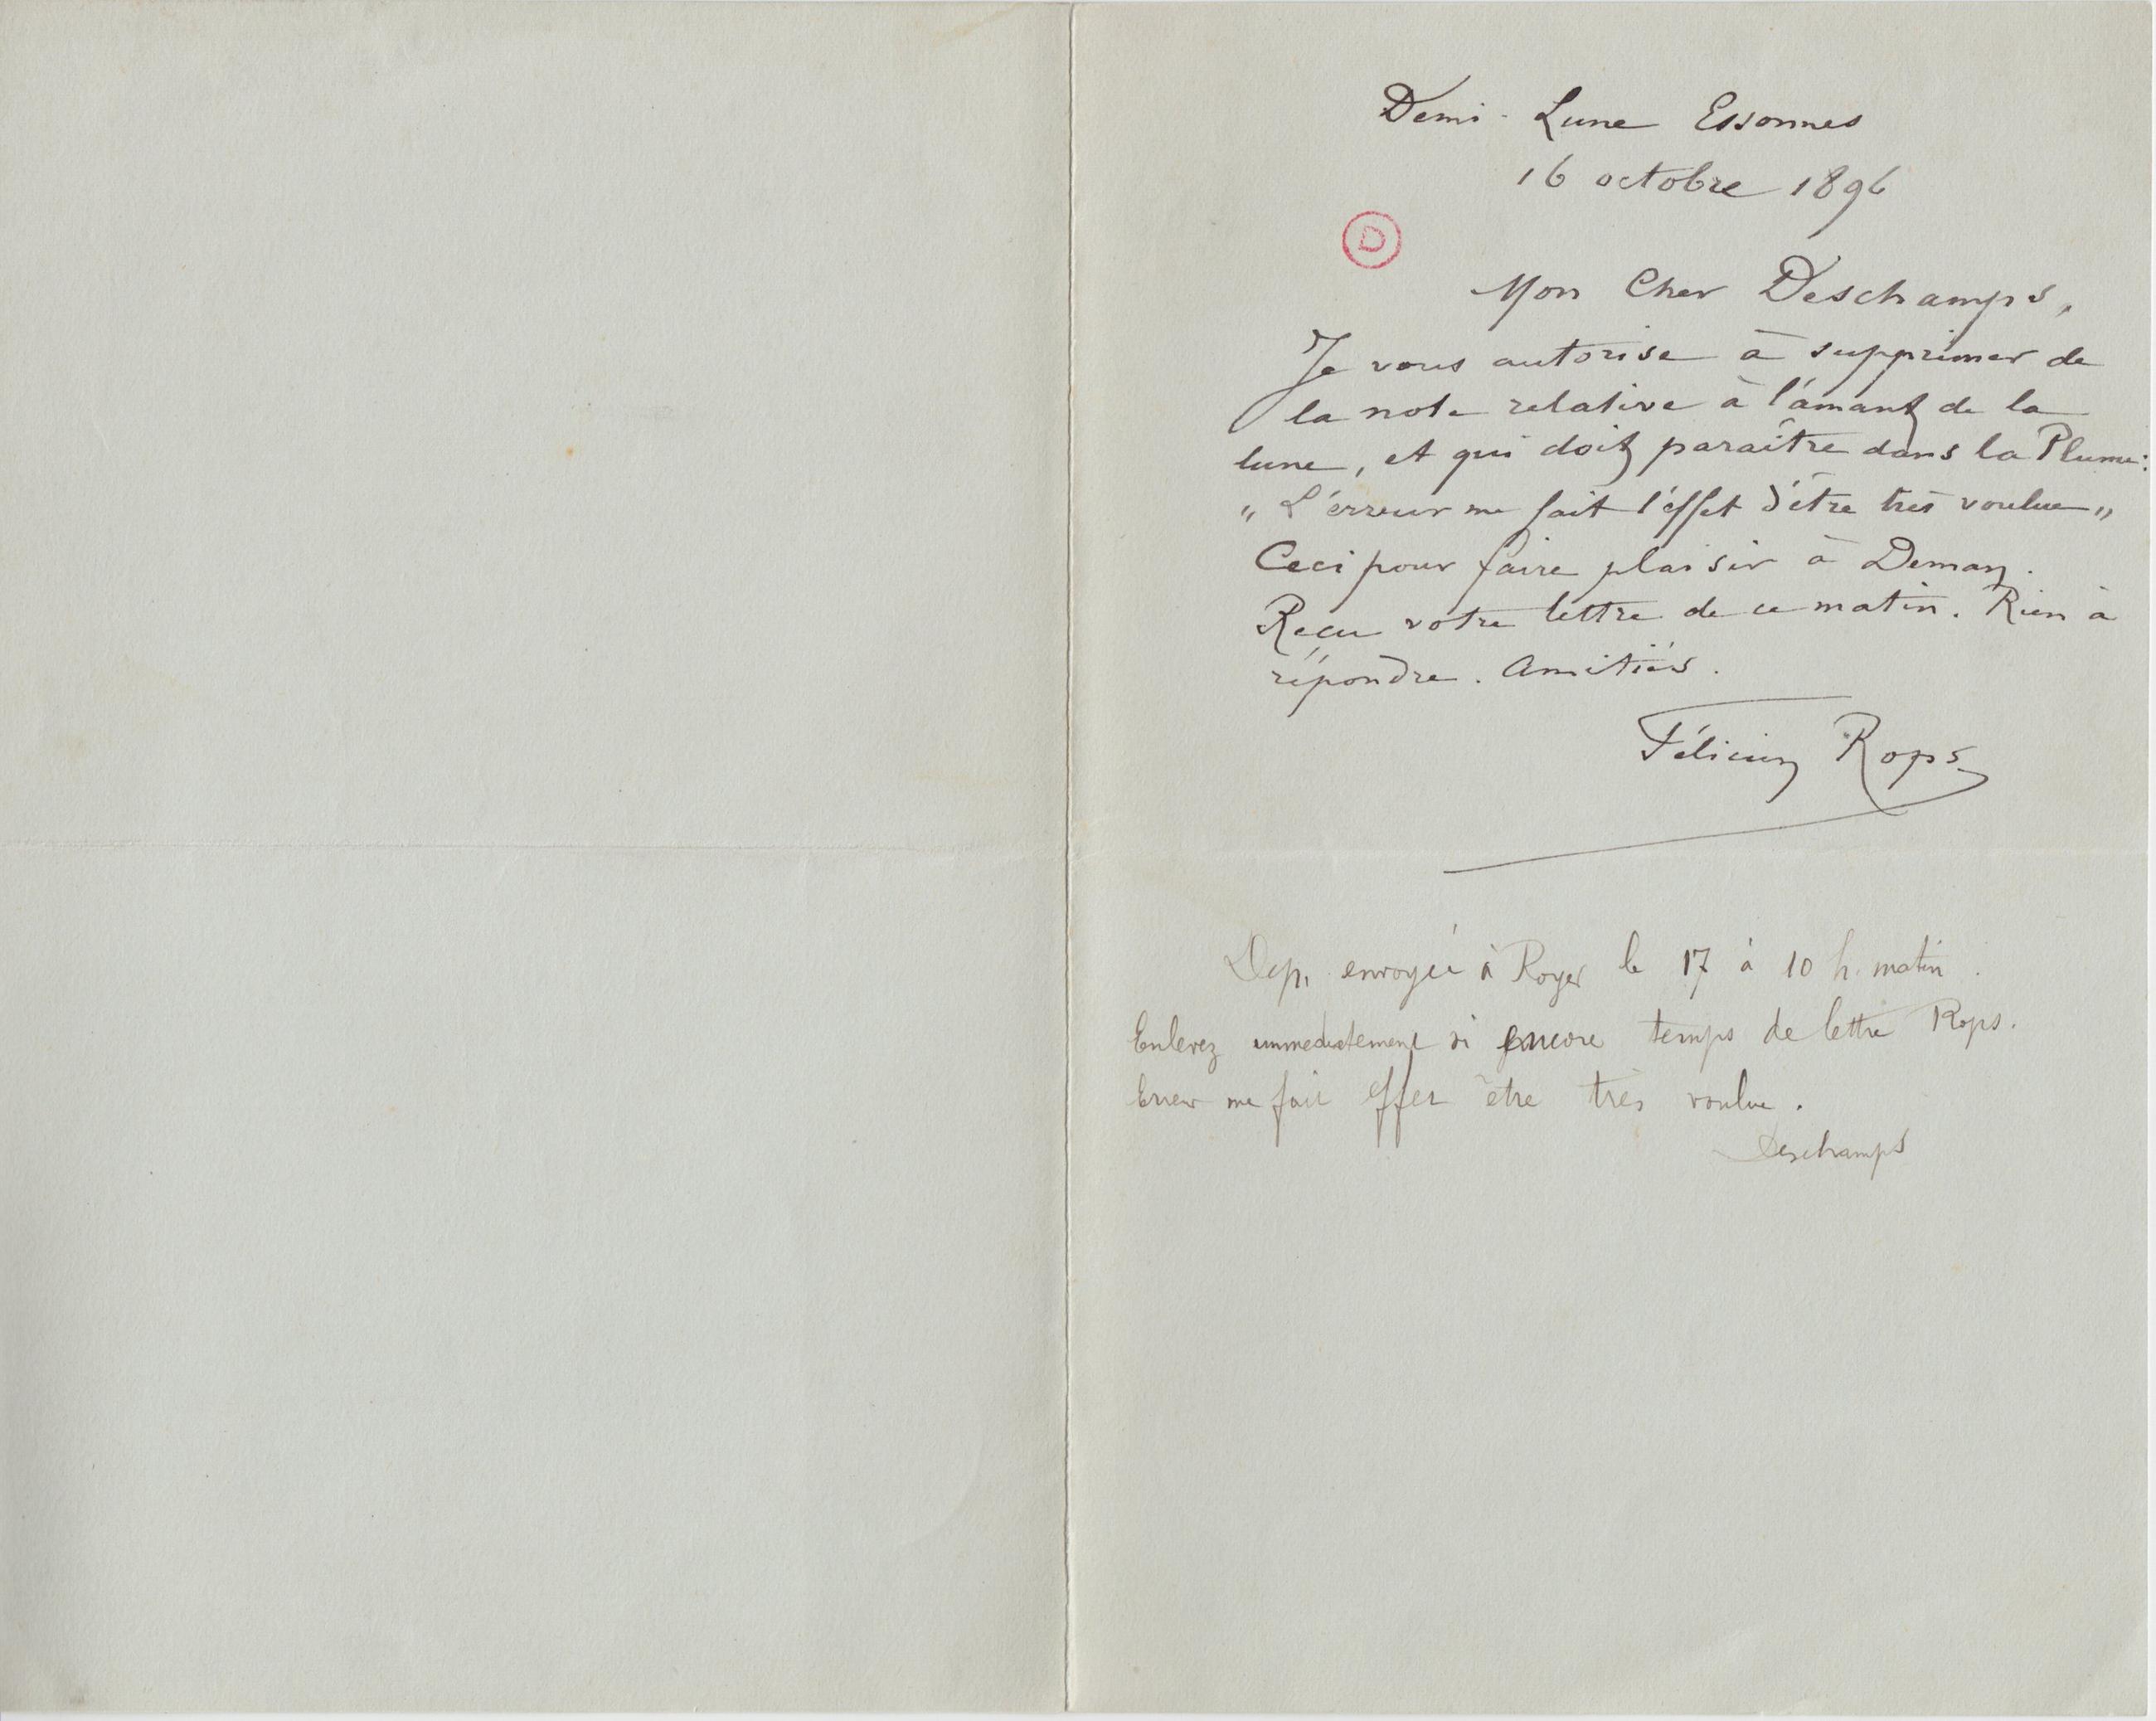 Demi-Lune Essonnes
16 octobre 1896
D
Mon Cher Deschamps,
Je vous autorise à supprimer de
la note relative à l'amant de la
lune, et qui doit paraître dans la Plume:
„ L'érreur me fait l'éffet d'être très voulue „
Ceci pour faire plaisir à Deman.
Reçu votre lettre de ce matin. Rien à
répondre. Amitiés.
Félicien Rops
Dep. envoyée à Royer le 17 à 10 h. matin.
Enlevez immediatement si encore temps de lettre Rops.
Erreur me fait effet être très voulue.
Deschamps